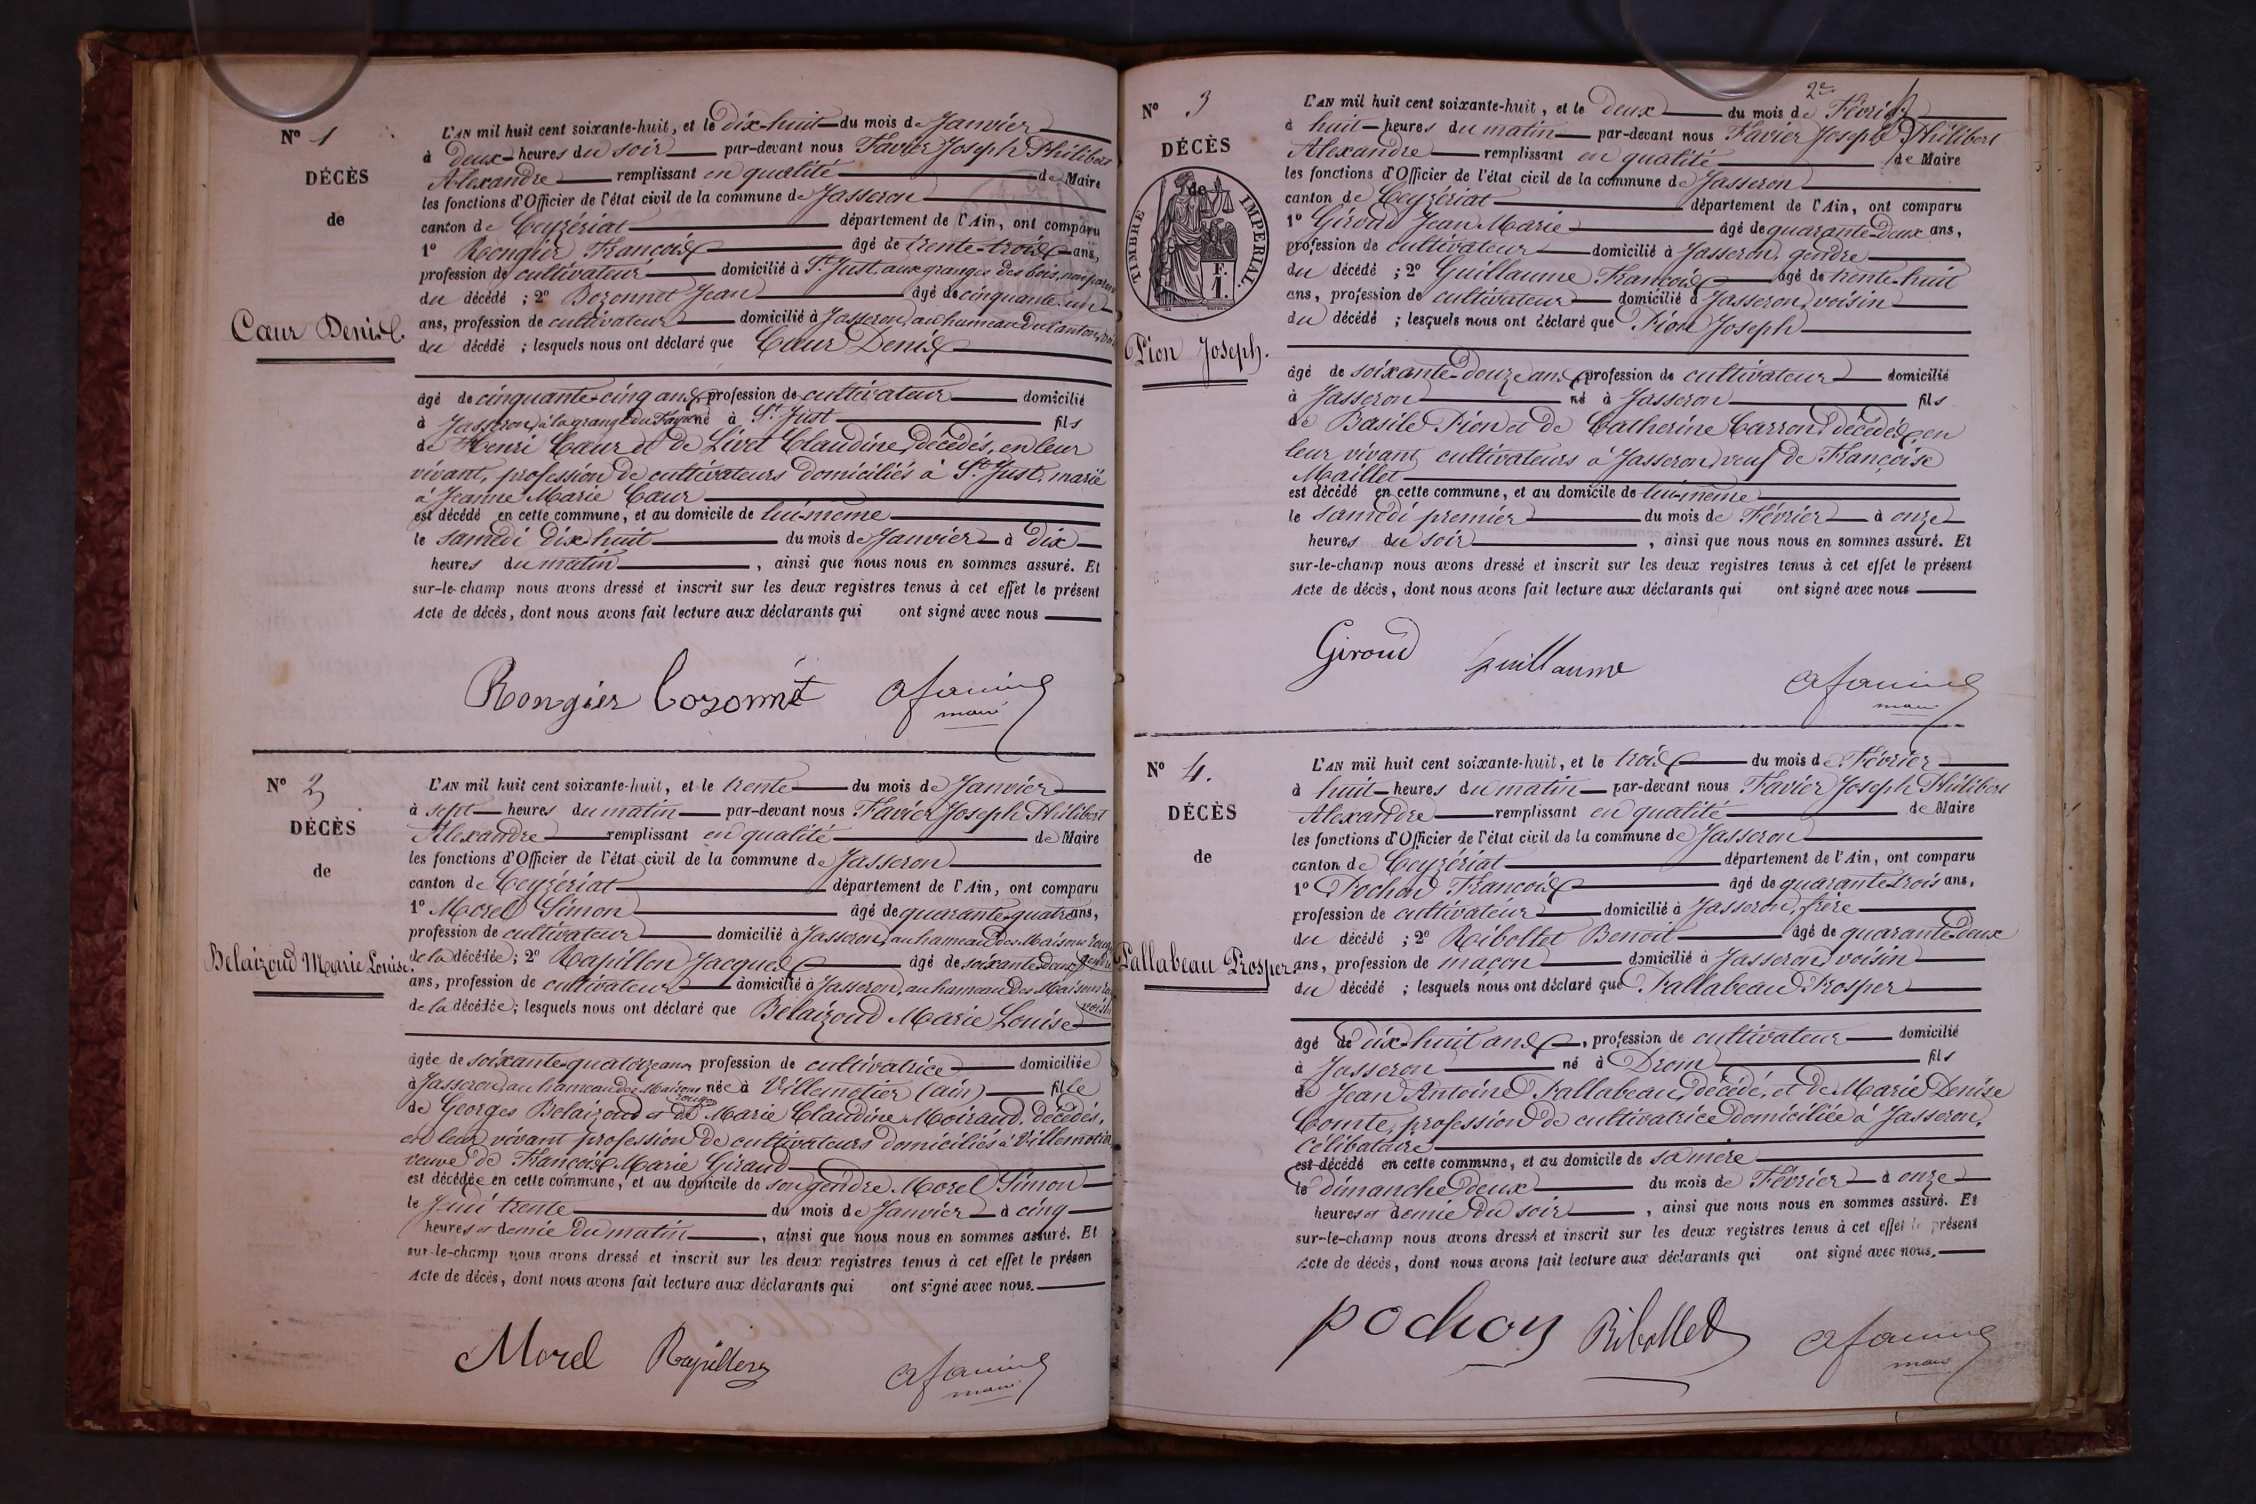 N° 1
DÉCÈS
de
Cœur Denis.
L'AN mil huit cent soixante-huit, et le dix-huit du mois de Janvier
à deux heures du soir par-devant nous Favier Joseph Philibert
Alexandre remplissant en qualité de Maire
les fonctions d'Officier de l'état civil de la commune de Jasseron
canton de Ceyzériat département de l'Ain, ont comparu
1° Rongier François âgé de trente-trois ans,
profession de cultivateur domicilié à St Just aux granges des bois,
du décédé ; 2° Bozonnet Jean âgé de cinquante-un
ans, profession de cultivateur domicilié à Jasseron, au hameau du Canton,
du décédé ; lesquels nous ont déclaré que Cœur Denis
âgé de cinquante-cinq ans, profession de cultivateur domicilié
à Jasseron, à la grange du né à St Just fils
de Henri Cœur et de Livet Claudine, décédés, en leur
vivant, profession de cultivateurs domiciliés à St Just, marié
à Jeanne Marie Cœur
est décédé en cette commune, et au domicile de lui-même
le samedi dix-huit du mois de Janvier à dix
heures du matin , ainsi que nous nous en sommes assuré. Et
sur-le-champ nous avons dressé et inscrit sur les deux registres tenus à cet effet le présent
Acte de décès, dont nous avons fait lecture aux déclarants qui ont signé avec nous
Rongier Bozonnet afavier
maire
N° 2
DÉCÈS
de
Belaizoud Marie Louise.
L'AN mil huit cent soixante-huit, et le trente du mois de Janvier
à sept heures du matin par-devant nous Favier Joseph Philibert
Alexandre remplissant en qualité de Maire
les fonctions d'Officier de l'état civil de la commune de Jasseron
canton de Ceyzériat département de l'Ain, ont comparu
1° Morel Simon âgé de quarante-quatre ans,
profession de cultivateur domicilié à Jasseron, au hameau des Maisons rouges gendre
de la décédée ; 2° Rapillon Jacques âgé de soixante-deux
ans, profession de cultivateur domicilié à Jasseron, au hameau des Maisons voisin
de la décédée ; lesquels nous ont déclaré que Belaizoud Marie Louise
âgée de soixante-quatorze ans profession de cultivatrice domiciliée
à Jasseron, au hameau des Maisons rouges née à Villemotier (ain) fille
de Georges Belaizoud et de Marie Claudine Moiraud, décédés,
en leur vivant profession de cultivateurs domiciliés à Villemotier
veuve de François Marie Giraud
est décédée en cette commune, et au domicile de son gendre Morel Simon
le Jeudi trente du mois de Janvier à cinq
heures et demie du matin , ainsi que nous nous en sommes assuré. Et
sur-le-champ nous avons dressé et inscrit sur les deux registres tenus à cet effet le présen
Acte de décès, dont nous avons fait lecture aux déclarants qui ont signé avec nous.
Morel Rapillon afavier
maire
2e
N° 3
DÉCÈS
de
TIMBRE IMPERIAL.
F.
1.
Pion Joseph.
L'AN mil huit cent soixante-huit, et le deux du mois de Février
à huit heures du matin par-devant nous Favier Joseph Philibert
Alexandre remplissant en qualité de Maire
les fonctions d'Officier de l'état civil de la commune de Jasseron
canton de Ceyzériat département de l'Ain, ont comparu
1° Giroud Jean Marie âgé de quarante-deux ans,
profession de cultivateur domicilié à Jasseron, gendre
du décédé ; 2° Guillaume François âgé de trente-huit
ans, profession de cultivateur domicilié à Jasseron, voisin
du décédé ; lesquels nous ont déclaré que Pion Joseph
âgé de soixante-douze ans, profession de cultivateur domicilié
à Jasseron né à Jasseron fils
de Basile Pion et de Catherine Carron, décédés, en
leur vivant cultivateurs à Jasseron, veuf de Françoise
Maillet
est décédé en cette commune, et au domicile de lui-même
le samedi premier du mois de Février à onze
heures du soir , ainsi que nous nous en sommes assuré. Et
sur-le-champ nous avons dressé et inscrit sur les deux registres tenus à cet effet le présent
Acte de décès, dont nous avons fait lecture aux déclarants qui ont signé avec nous
Giroud guillaume afavier
maire
N° 4.
DÉCÈS
de
Pallabeau Prosper
L'AN mil huit cent soixante-huit, et le trois du mois de Février
à huit heures du matin par-devant nous Favier Joseph Philibert
Alexandre remplissant en qualité de Maire
les fonctions d'Officier de l'état civil de la commune de Jasseron
canton de Ceyzériat département de l'Ain, ont comparu
1° Pochon François âgé de quarante-trois ans,
profession de cultivateur domicilié à Jasseron, frère
du décédé ; 2° Ribollet Benoit âgé de quarante-deux
ans, profession de maçon domicilié à Jasseron, voisin
du décédé ; lesquels nous ont déclaré que Pallabeau Prosper
âgé de dix-huit ans, profession de cultivateur domicilié
à Jasseron né à Drom fils
de Jean Antoine Pallabeau, décédé, et de Marie Denise
Comte, profession de cultivatrice domiciliée à Jasseron,
Célibataire
est décédé en cette commune, et au domicile de sa mère
le dimanche deux du mois de Février à onze
heures et demie du soir , ainsi que nous nous en sommes assuré. Et
sur-le-champ nous avons dressé et inscrit sur les deux registres tenus à cet effet le présent
Acte de décès, dont nous avons fait lecture aux déclarants qui ont signé avec nous.
pochon Ribollet afavier
maire